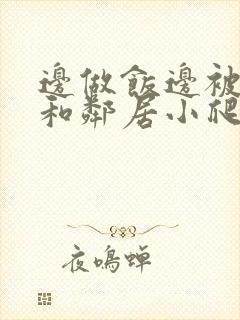 邊做飯邊被
和鄰居小爬
夜鳴蟬